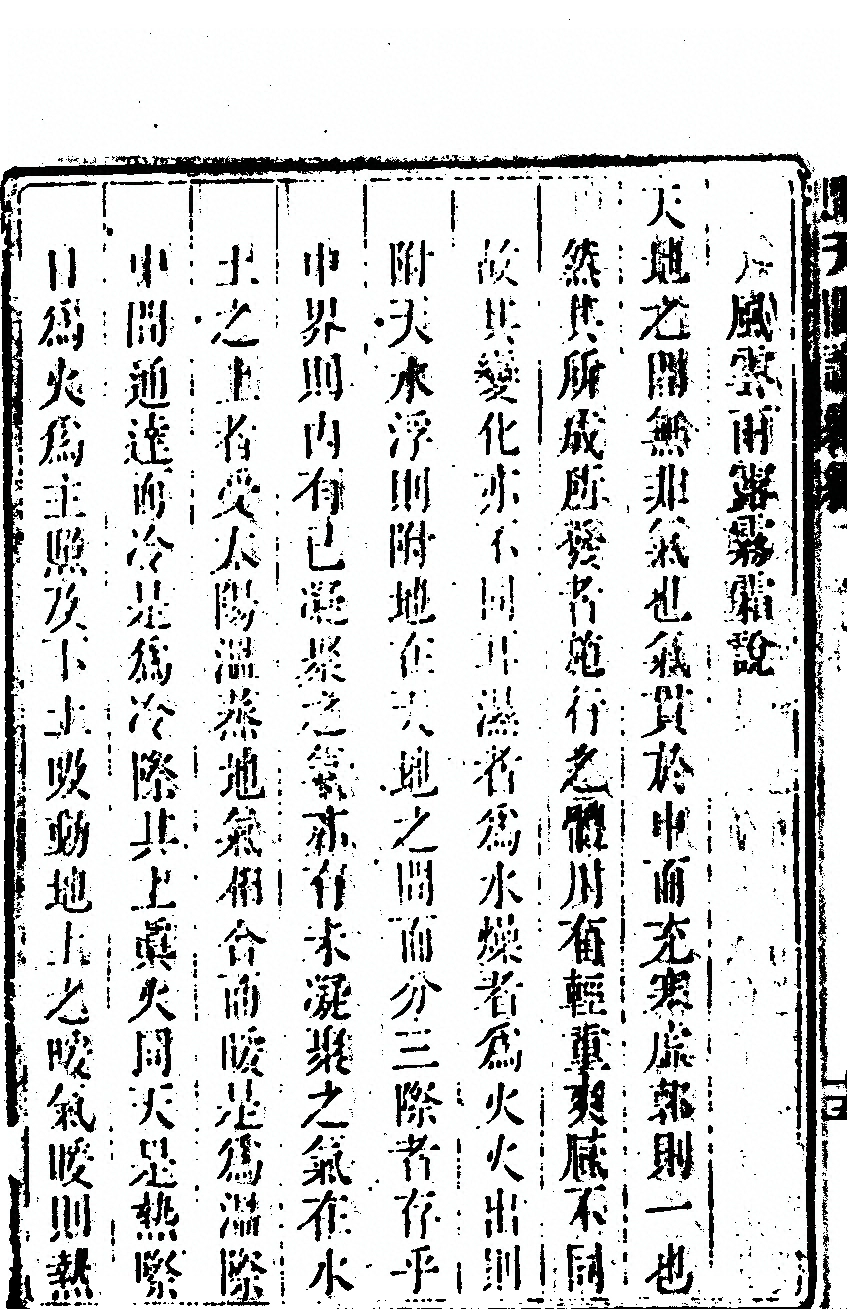 風雲雨露霧霜說
天地之間無非氣也氣貫於中而充塞虛郭則一也
然其所成所發者施行之體用有輕重爽膩不同
故其變化亦不同耳濕者爲水燥者爲火火出則
附天水浮則附地在天地之間而分三際者存乎
中界則內有已凝聚之氣亦有未凝聚之氣在水
土之上者受太陽溫蒸地氣相合而暖是爲溫際
中間通達而冷是爲冷際其上眞火同天是熱際
日爲火爲主照及下土吸動地上之暖氣暖則熱